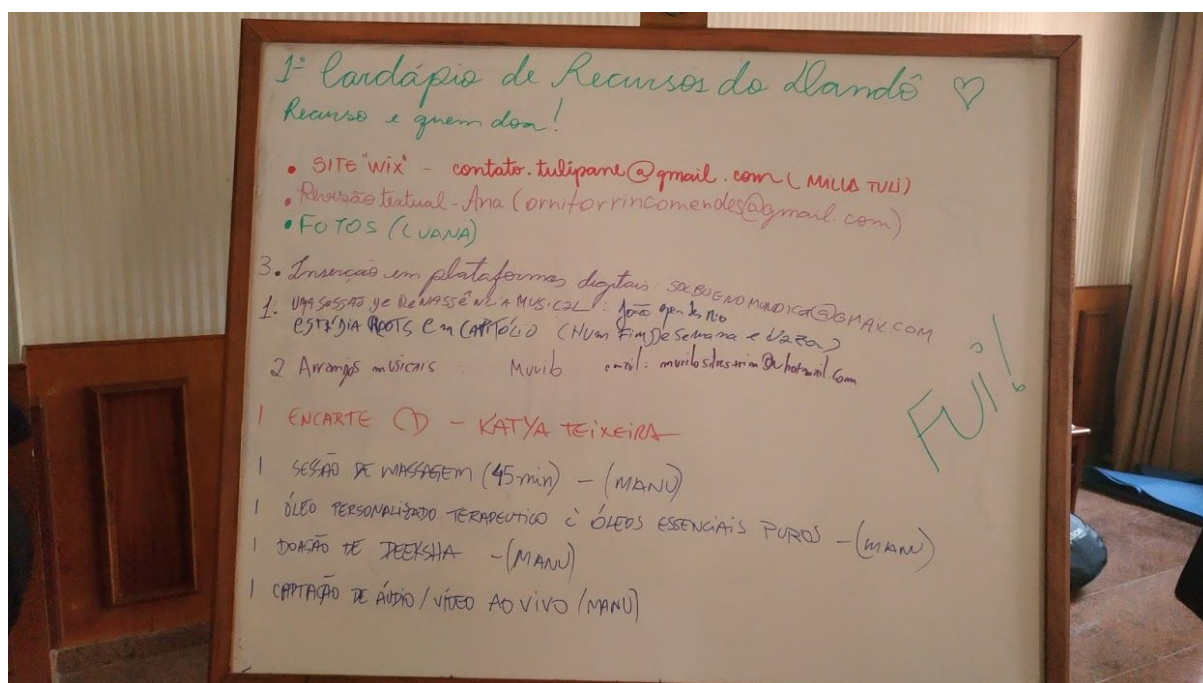 1º Cardápio de Recursos do Dandô ♡
Recurso e quem doa!
• SITE "WIX" - contato.tulipane@gmail.com (MILLA TULI)
• Revisão textual - Ana (ornitorrincomendes@gmail.com)
• FOTOS (LUANA)
3. Inserção em plataformas digitais: SOLBUENOMUNDICA@GMAIL.COM
1. UMA SESSÃO DE RENASSÊNCIA MUSICAL: João
ESTADIA ROOTS EM CAPITÓLIO (NUM FIM DE SEMANA e VAZA)
2 Arranjos musicais : Murilo email: @hotmail.com
FUI!
1 ENCARTE CD - KATYA TEIXEIRA
1 SESSÃO DE MASSAGEM (45min) - (MANU)
1 ÓLEO PERSONALIZADO TERAPEUTICO C ÓLEOS ESSENCIAIS PUROS - (MANU)
1 DOAÇÃO DE DEEKSHA - (MANU)
1 CAPTAÇÃO DE ÁUDIO / VÍDEO AO VIVO (MANU)